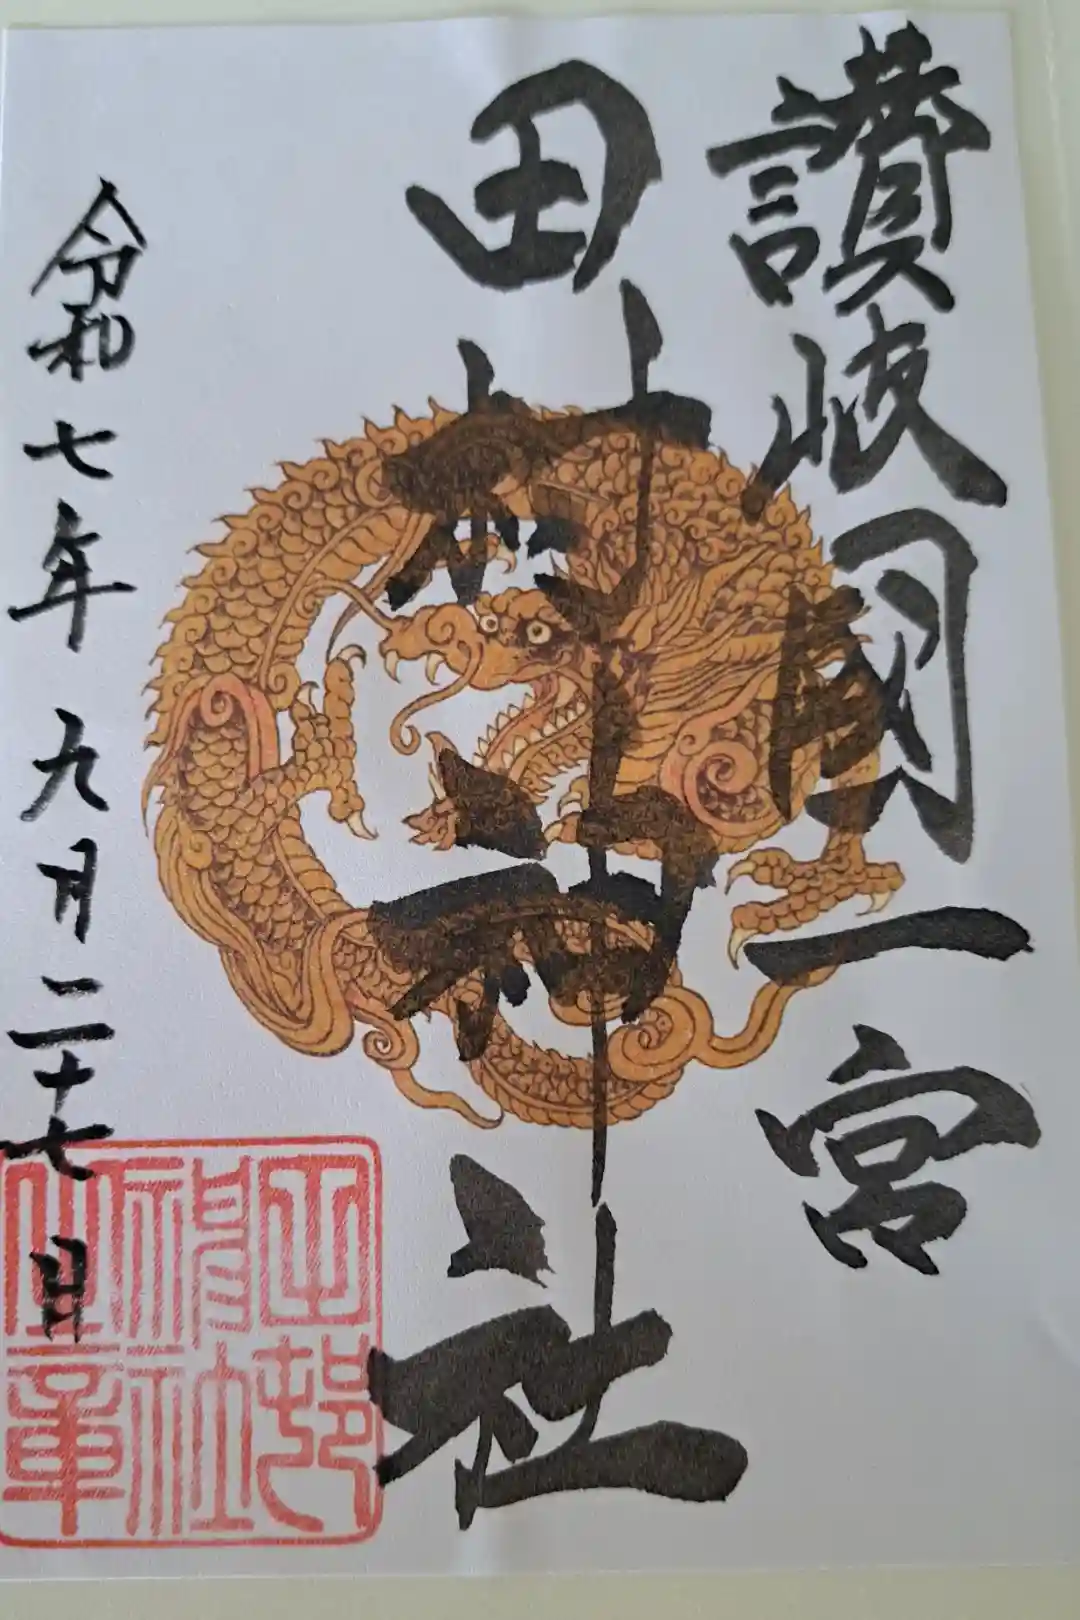 讃岐国一宮
田村神社
令和七年九月二十七日
田村
神社
之章